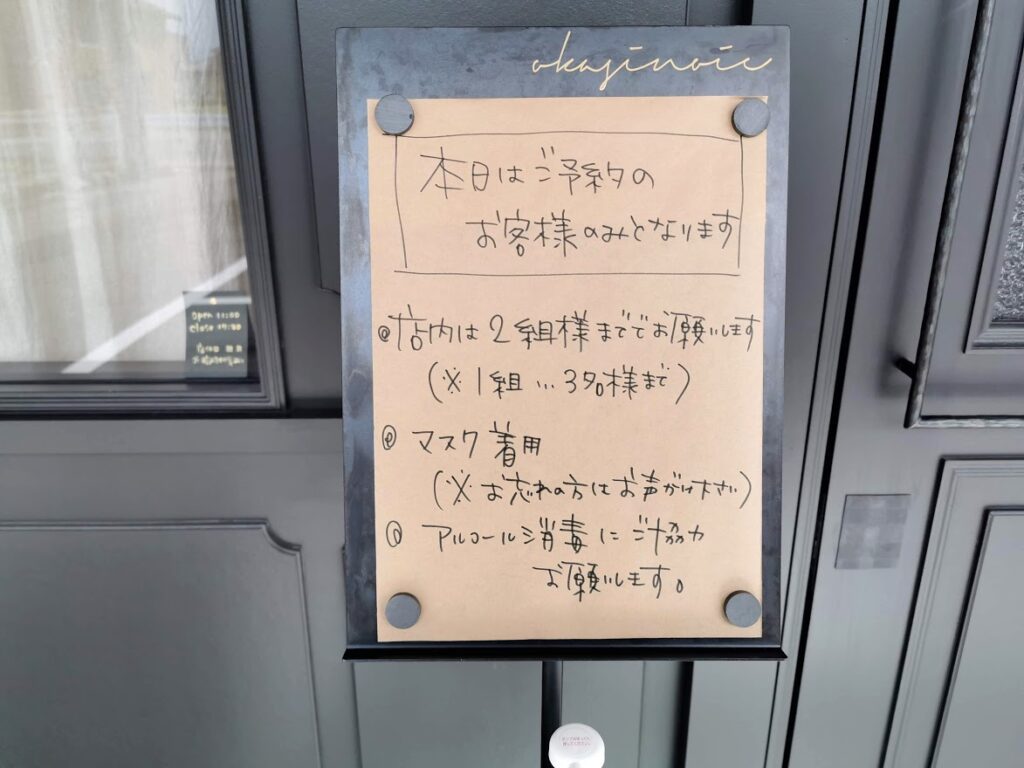 okajinoie
本日はご予約の
お客様のみとなります
店内は2組様まででお願いします
(※1組…3名様まで)
マスク着用
(※お忘れの方はお声がけ下さい)
アルコール消毒にご協力
お願いします。
open 11:00
close 17:00